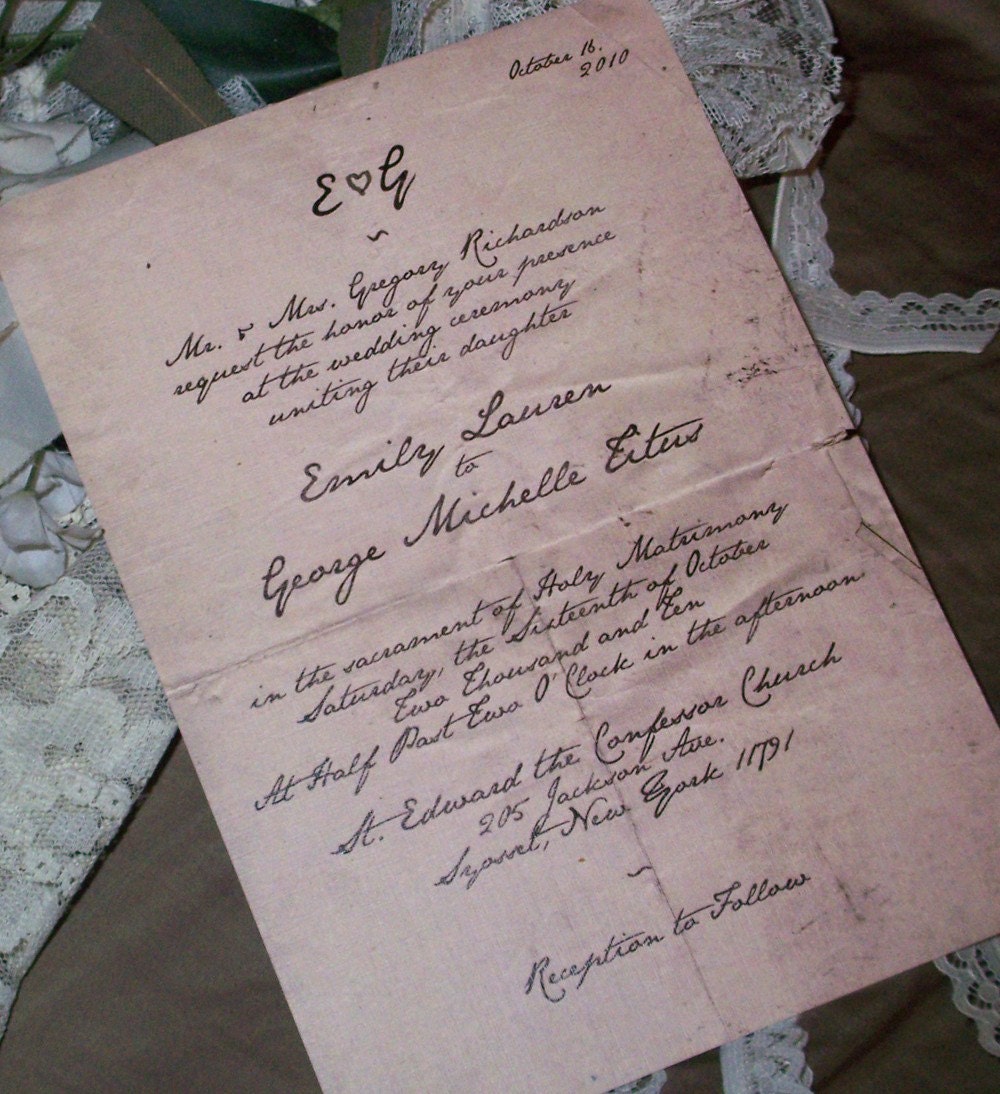 October 16.
2010
E♡G
~
Mr. & Mrs. Gregory Richardson
request the honor of your presence
at the wedding ceremony
uniting their daughter
Emily Lauren
to
George Michelle Titus
in the sacrament of Holy Matrimony
Saturday, the Sixteenth of October
Two Thousand and Ten
At Half Past Two O'Clock in the afternoon
St. Edward the Confessor Church
205 Jackson Ave.
Syosset, New York 11791
~
Reception to Follow